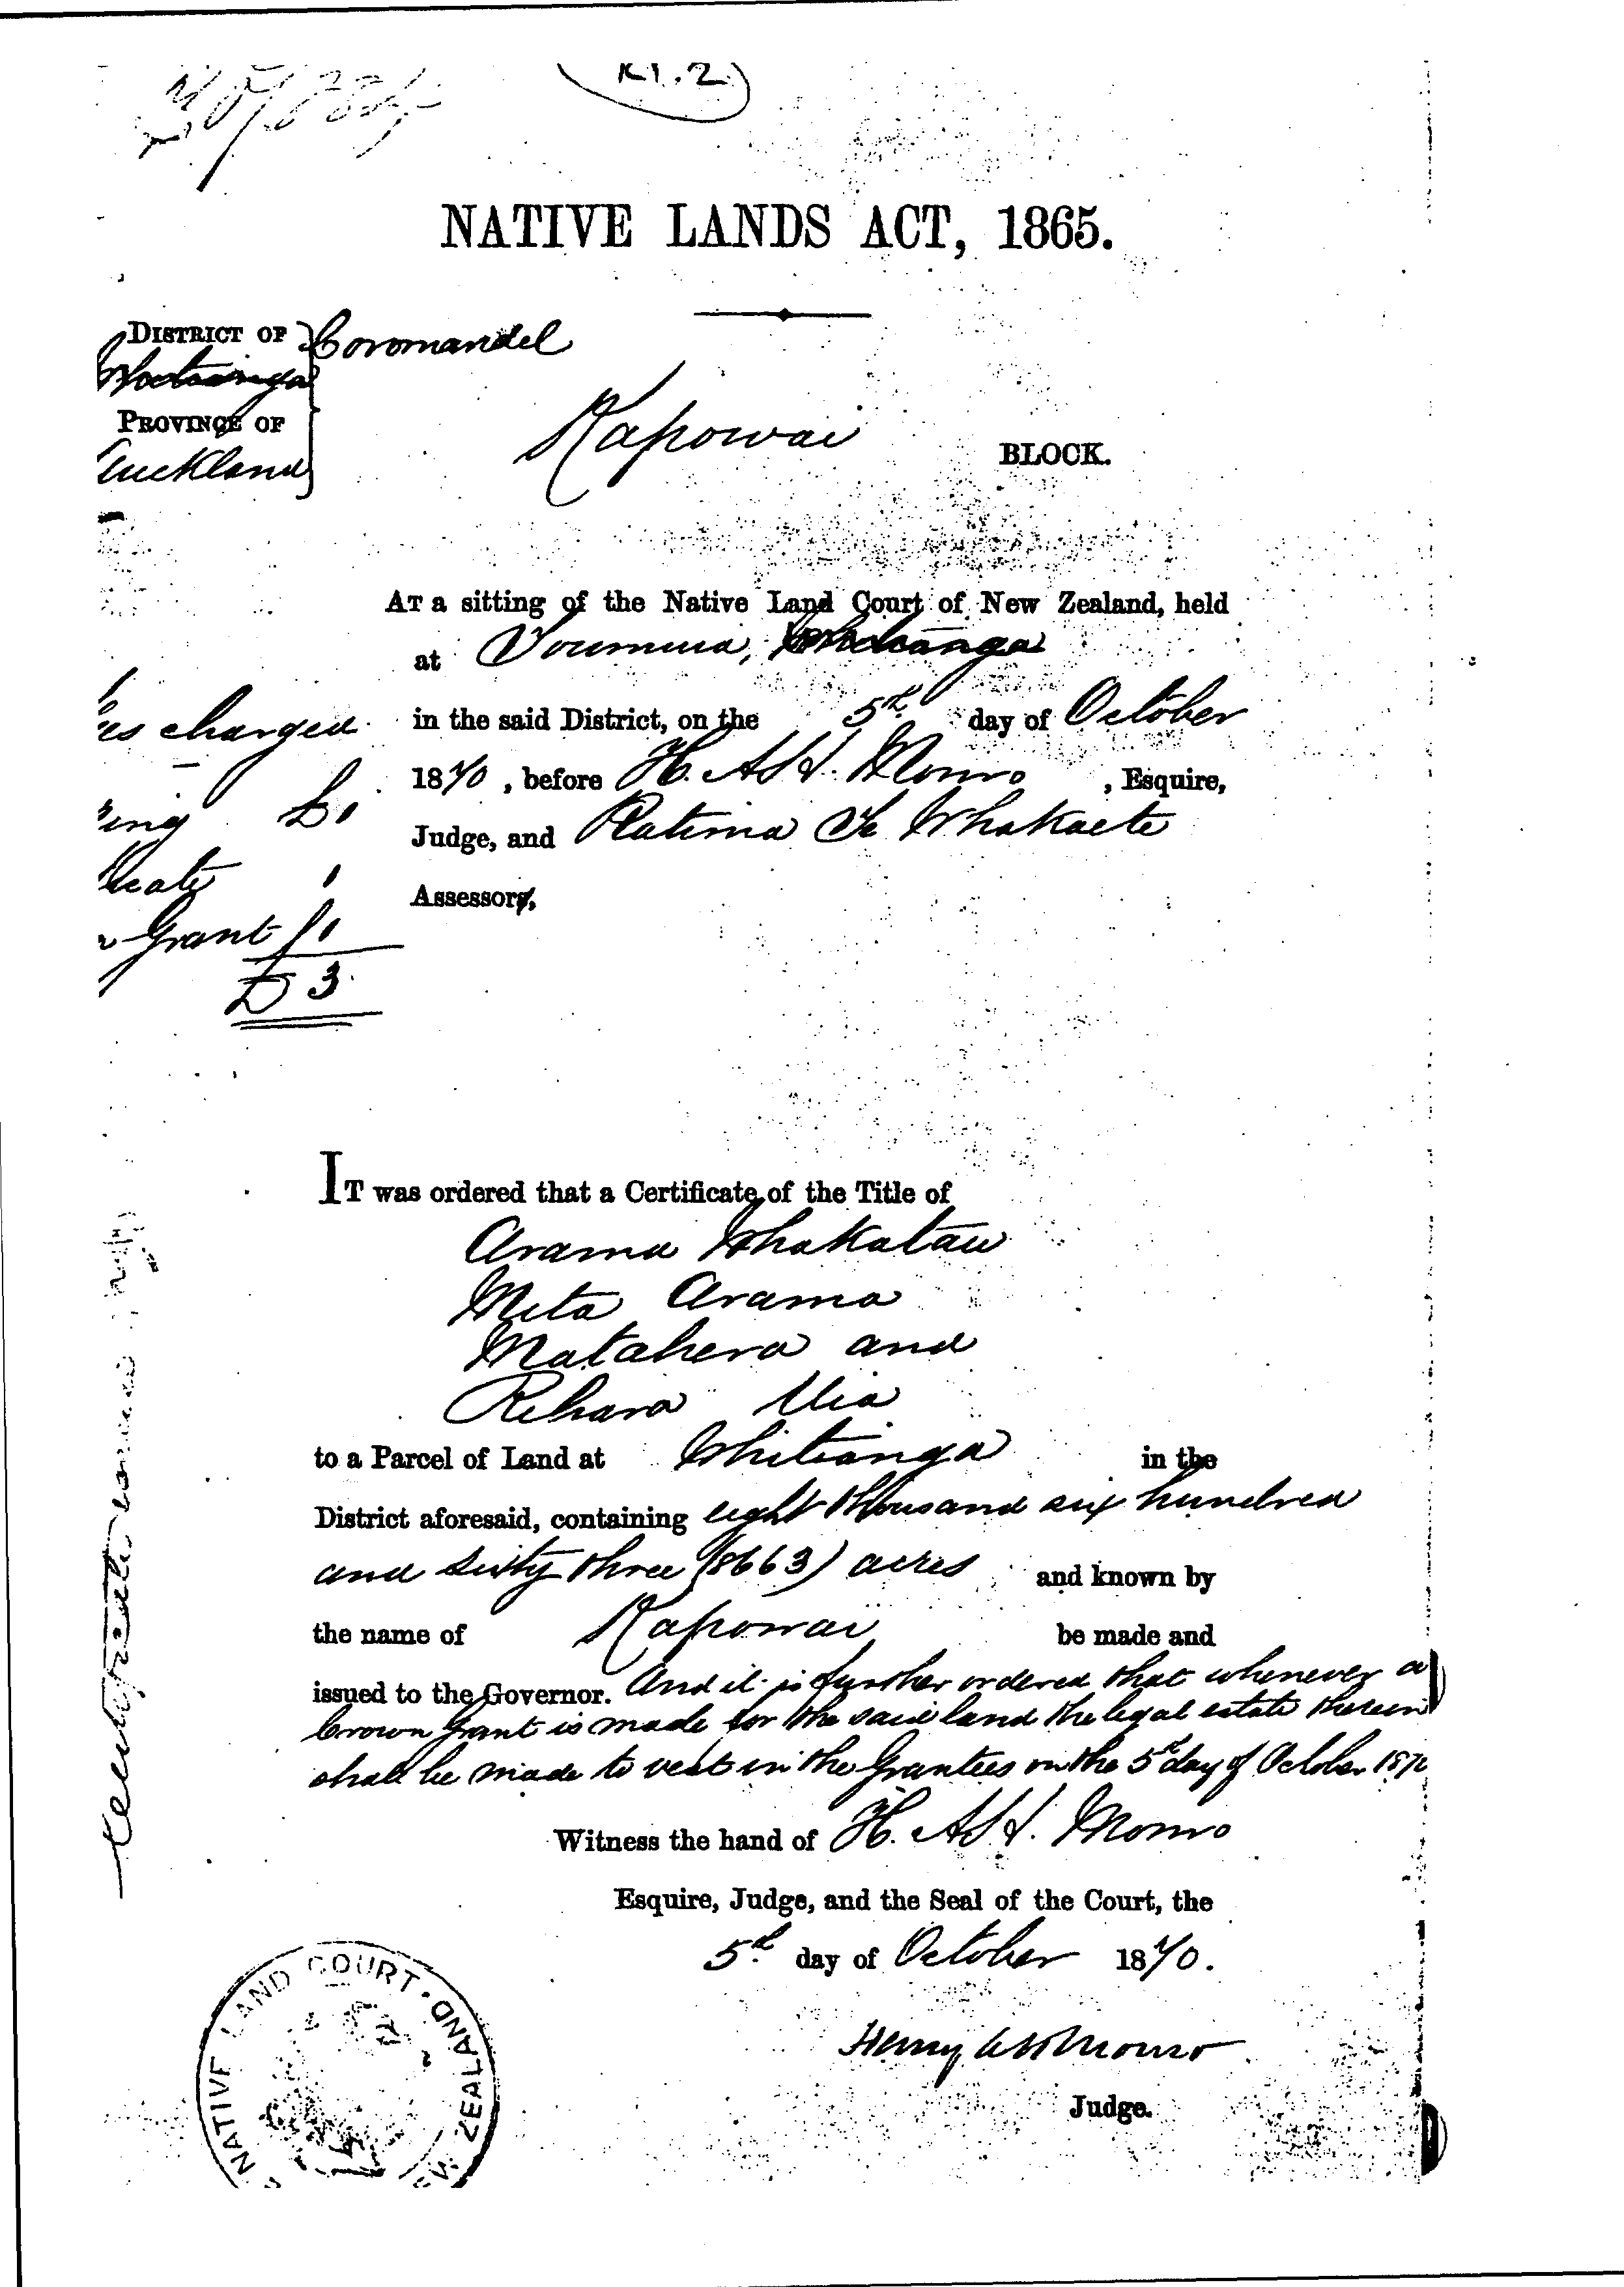 K1.2
NATIVE LANDS ACT, 1865.
DISTRICT OF Coromandel
PROVINCE OF
Auckland
Kapowai BLOCK.
AT a sitting of the Native Land Court of New Zealand, held
at Whitianga
in the said District, on the 5th day of October
1870, before H. A. H. Monro, Esquire,
Judge, and Ratima Te Whakaete
Assessors,
es charged
ring £1
icate 1
n Grant 1
£3
IT was ordered that a Certificate of the Title of
Arama Whakatau
Meta Arama
Matahera and
Rehara Uia
to a Parcel of Land at Whitianga in the
District aforesaid, containing eight thousand six hundred
and sixty three (8663) acres and known by
the name of Kapowai be made and
issued to the Governor. And it is further ordered that whenever a
Crown Grant is made for the said land the legal estate therein
shall be made to vest in the Grantees on the 5th day of October 1870
Witness the hand of H. A. H. Monro
Esquire, Judge, and the Seal of the Court, the
5th day of October 1870.
Henry A H Monro
Judge.
NATIVE LAND COURT. ZEALAND
Certificate